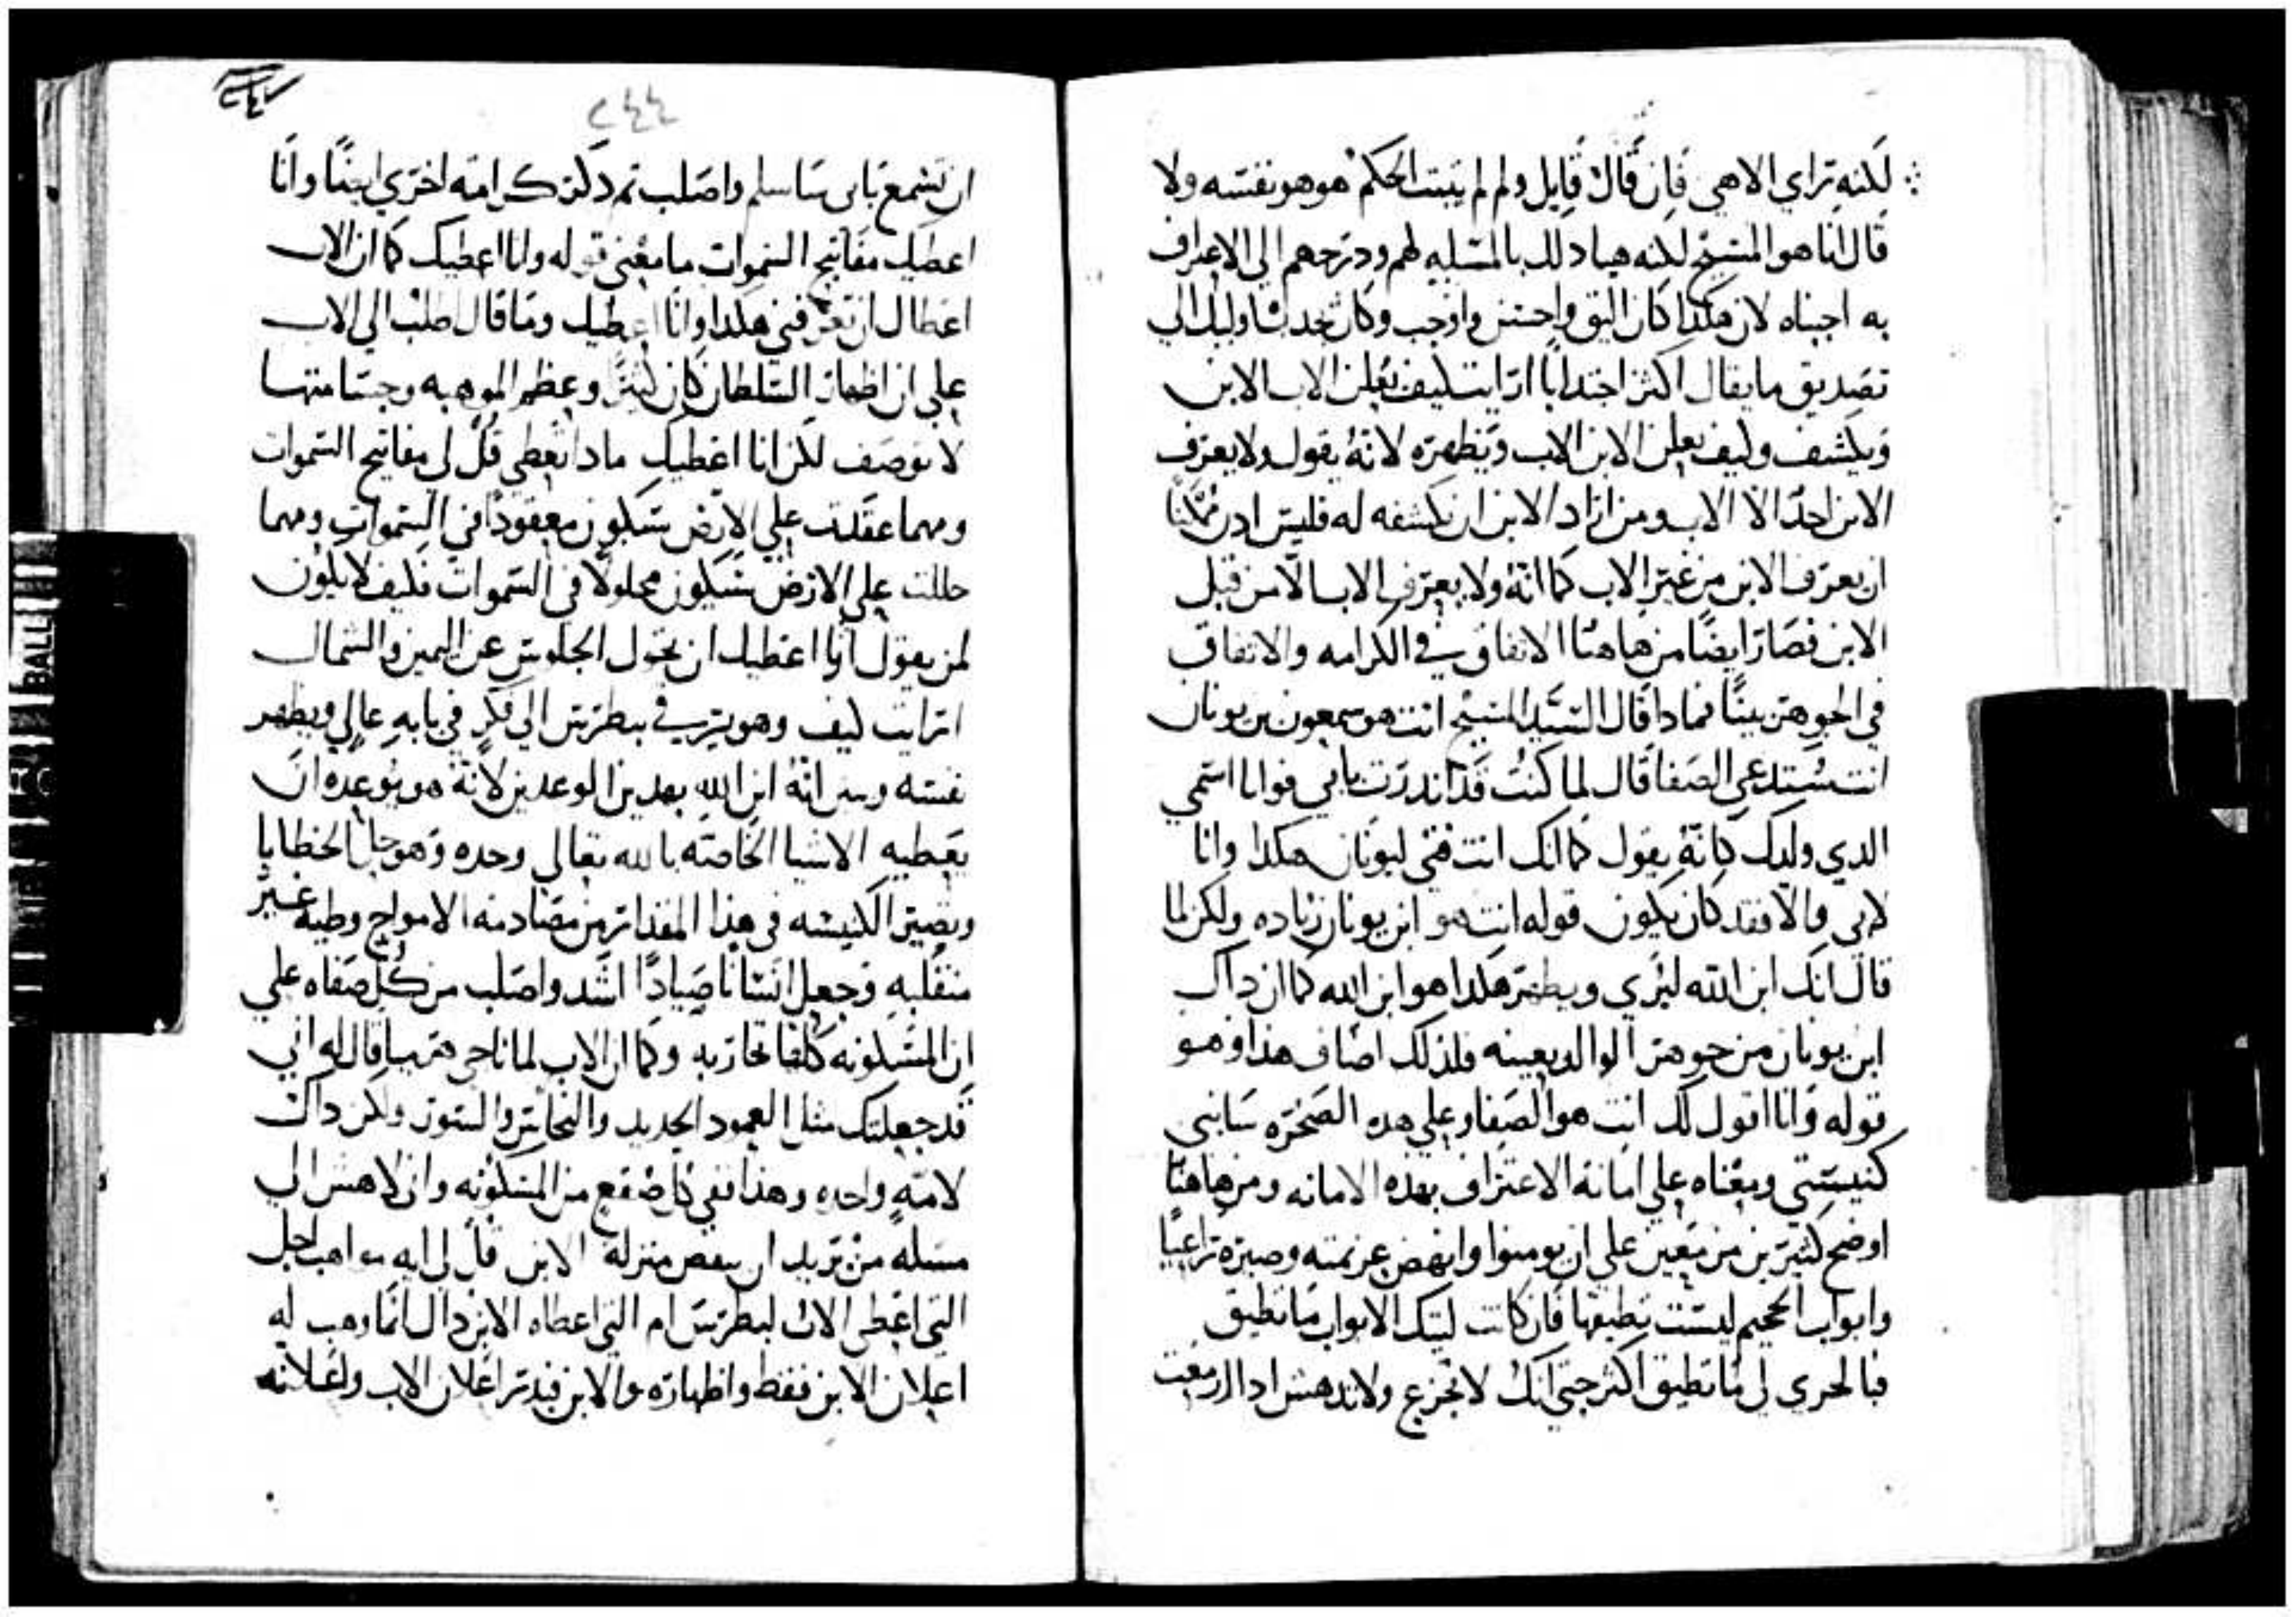 لكنه براي الاهي فان قال قايل ولم لم يثبت الحكم هو هو نفسه ولا
قال انا هو المسيح لكنه هيا ذلك بالمسله لهم ودرجهم الي الاعتراف
به اجبناه لان هكذا كان اليق واحسن واوجب وكان يجذب اوليك الي
تصديق ما يقال اكثر اجتدابا ارايت كيف يعلن الاب الابن
ويكشف وكيف يعلن الابن الاب ويظهره لانه يقول ولا يعرف
الابن احدا الا الاب ومن اراد الابن ان يكشفه له فليس ادن ممكنا
ان يعرف الابن من غير الاب كما انه ولا يعرف الاب الا من قبل
الابن فصار ايضا من هاهنا الاتفاق في الكرامه والاتفاق
في الجوهر بينا فمادا قال السيد المسيح انت هو سمعون بن يونان
انت ستدعي الصفا قال لما كنت قد اندرت بابي فوانا اسمي
الدي ولدك كانه يقول كما انك انت فتي ليونان هكدا وانا
لابي والا فقد كان يكون قوله انت هو ابن يونان زياده ولكن لما
قال انك ابن الله ليري ويظهر هكدا هو ابن الله كما ان داك
ابن يونان من جوهر الوالد بعينه فلذلك اضاف هذا وهو
قوله وانا اقول لك انت هو الصفا وعلي هده الصخره سابني
كنيستي ومعناه علي امانة الاعتراف بهده الامانه ومن هاهنا
اوضح كثيرين مزمعين علي ان يومنوا وانهض عزيمته وصيره راعيا
وابواب الجحيم ليست تطيقها فان كانت لتيك الابواب ما تطيق
فبالحري لي ما تطيق اكثر حتي انك لا تجزع ولا تدهش ادا ازمعت
٢٤٤
ان تسمع باني ساسلم واصلب تم دكر كرامه اخري ايضا وانا
اعطيك مفاتيح السموات ما معني قوله وانا اعطيك كما ان الاب
اعطاك ان تعرفني هكدا وانا اعطيك وما قال طلبت الي الاب
علي ان اظهار السلطان كان كثيرا وعظم الموهبه وجسامتها
لا توصف لكن انا اعطيك مادا تعطي قل لي مفاتيح السموات
ومهما عقدت علي الارض ستكون معقودا في السموات ومهما
حللت علي الارض ستكون محلولا في السموات فكيف لا يكون
لمن يقول انا اعطيك ان يخول الجلوس عن اليمين والشمال
ارايت كيف وهو يرتب في بطرس الي فكر في بابه عالي ويظهر
نفسه وبين انه ابن الله بهدين الوعدين لانه هو يوعده ان
يعطيه الاشيا الخاصه بالله تعالي وحده وهو حل الخطايا
ويصير الكنيسه في هذا المقدار من مصادمه الامواج وطيه غير
منقلبه وجعل انسانا صيادا اشد واصلب من كل صفاه علي
ان المسكونه كلها تحاربه وكما ان الاب لما ناجي هرميا قال له اني
قد جعلتك مثل العمود الحديد والنحاس والسور ولكن داك
لامة واحده وهذا ففي كل صقع من المسكونه واني لاهش الي
مسله من يريد ان ينقص منزلة الابن قل لي ايه مواهب اجل
التي اعطي الاب لبطرس ام التي اعطاه الابن داك انما وهب له
اعلان الابن فقط واظهاره والابن فبدر اعلان الاب واعلانه